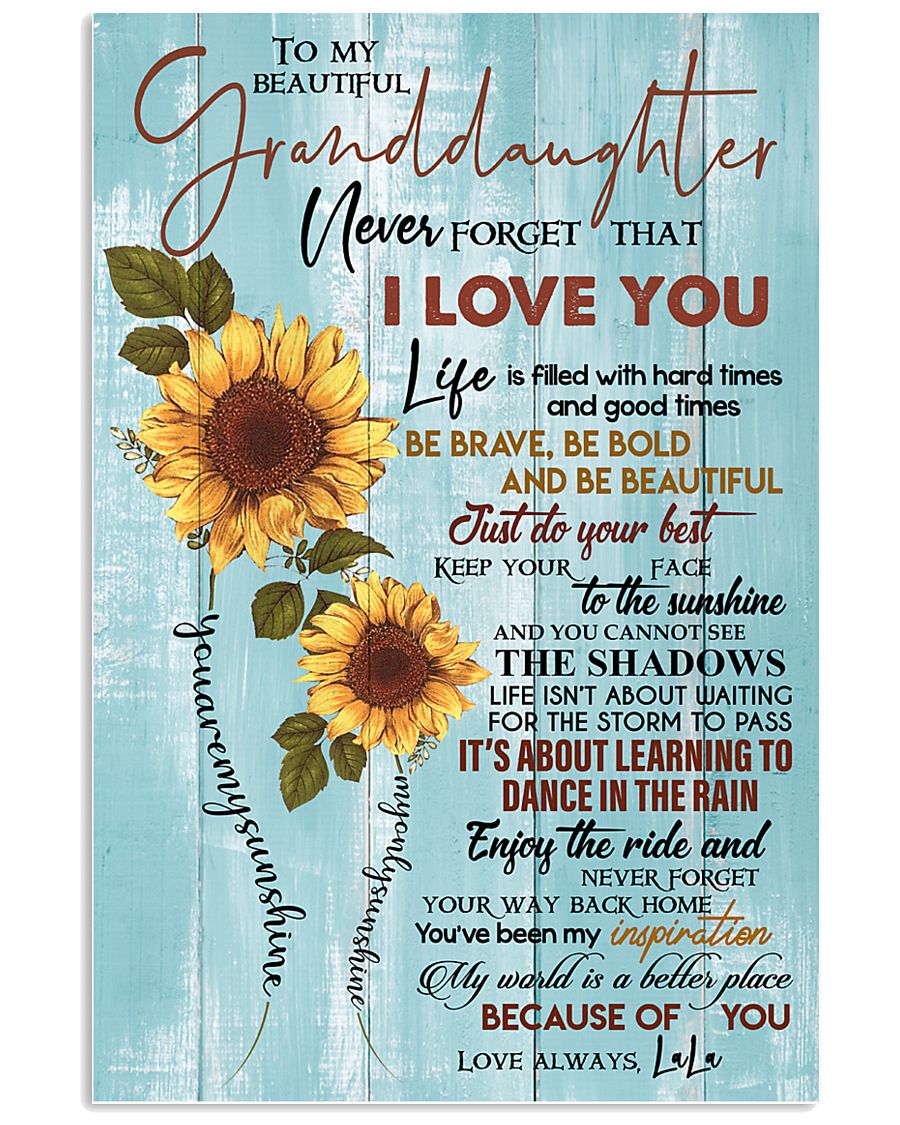 TO MY
BEAUTIFUL
Granddaughter
Never FORGET THAT
I LOVE YOU
Life is filled with hard times
and good times
BE BRAVE, BE BOLD
AND BE BEAUTIFUL
Just do your best
KEEP YOUR FACE
to the sunshine
AND YOU CANNOT SEE
THE SHADOWS
LIFE ISN'T ABOUT WAITING
FOR THE STORM TO PASS
IT'S ABOUT LEARNING TO
DANCE IN THE RAIN
Enjoy the ride and
NEVER FORGET
YOUR WAY BACK HOME
You've been my inspiration
My world is a better place
BECAUSE OF YOU
LOVE ALWAYS, LaLa
youaremysunshine
myonlysunshine